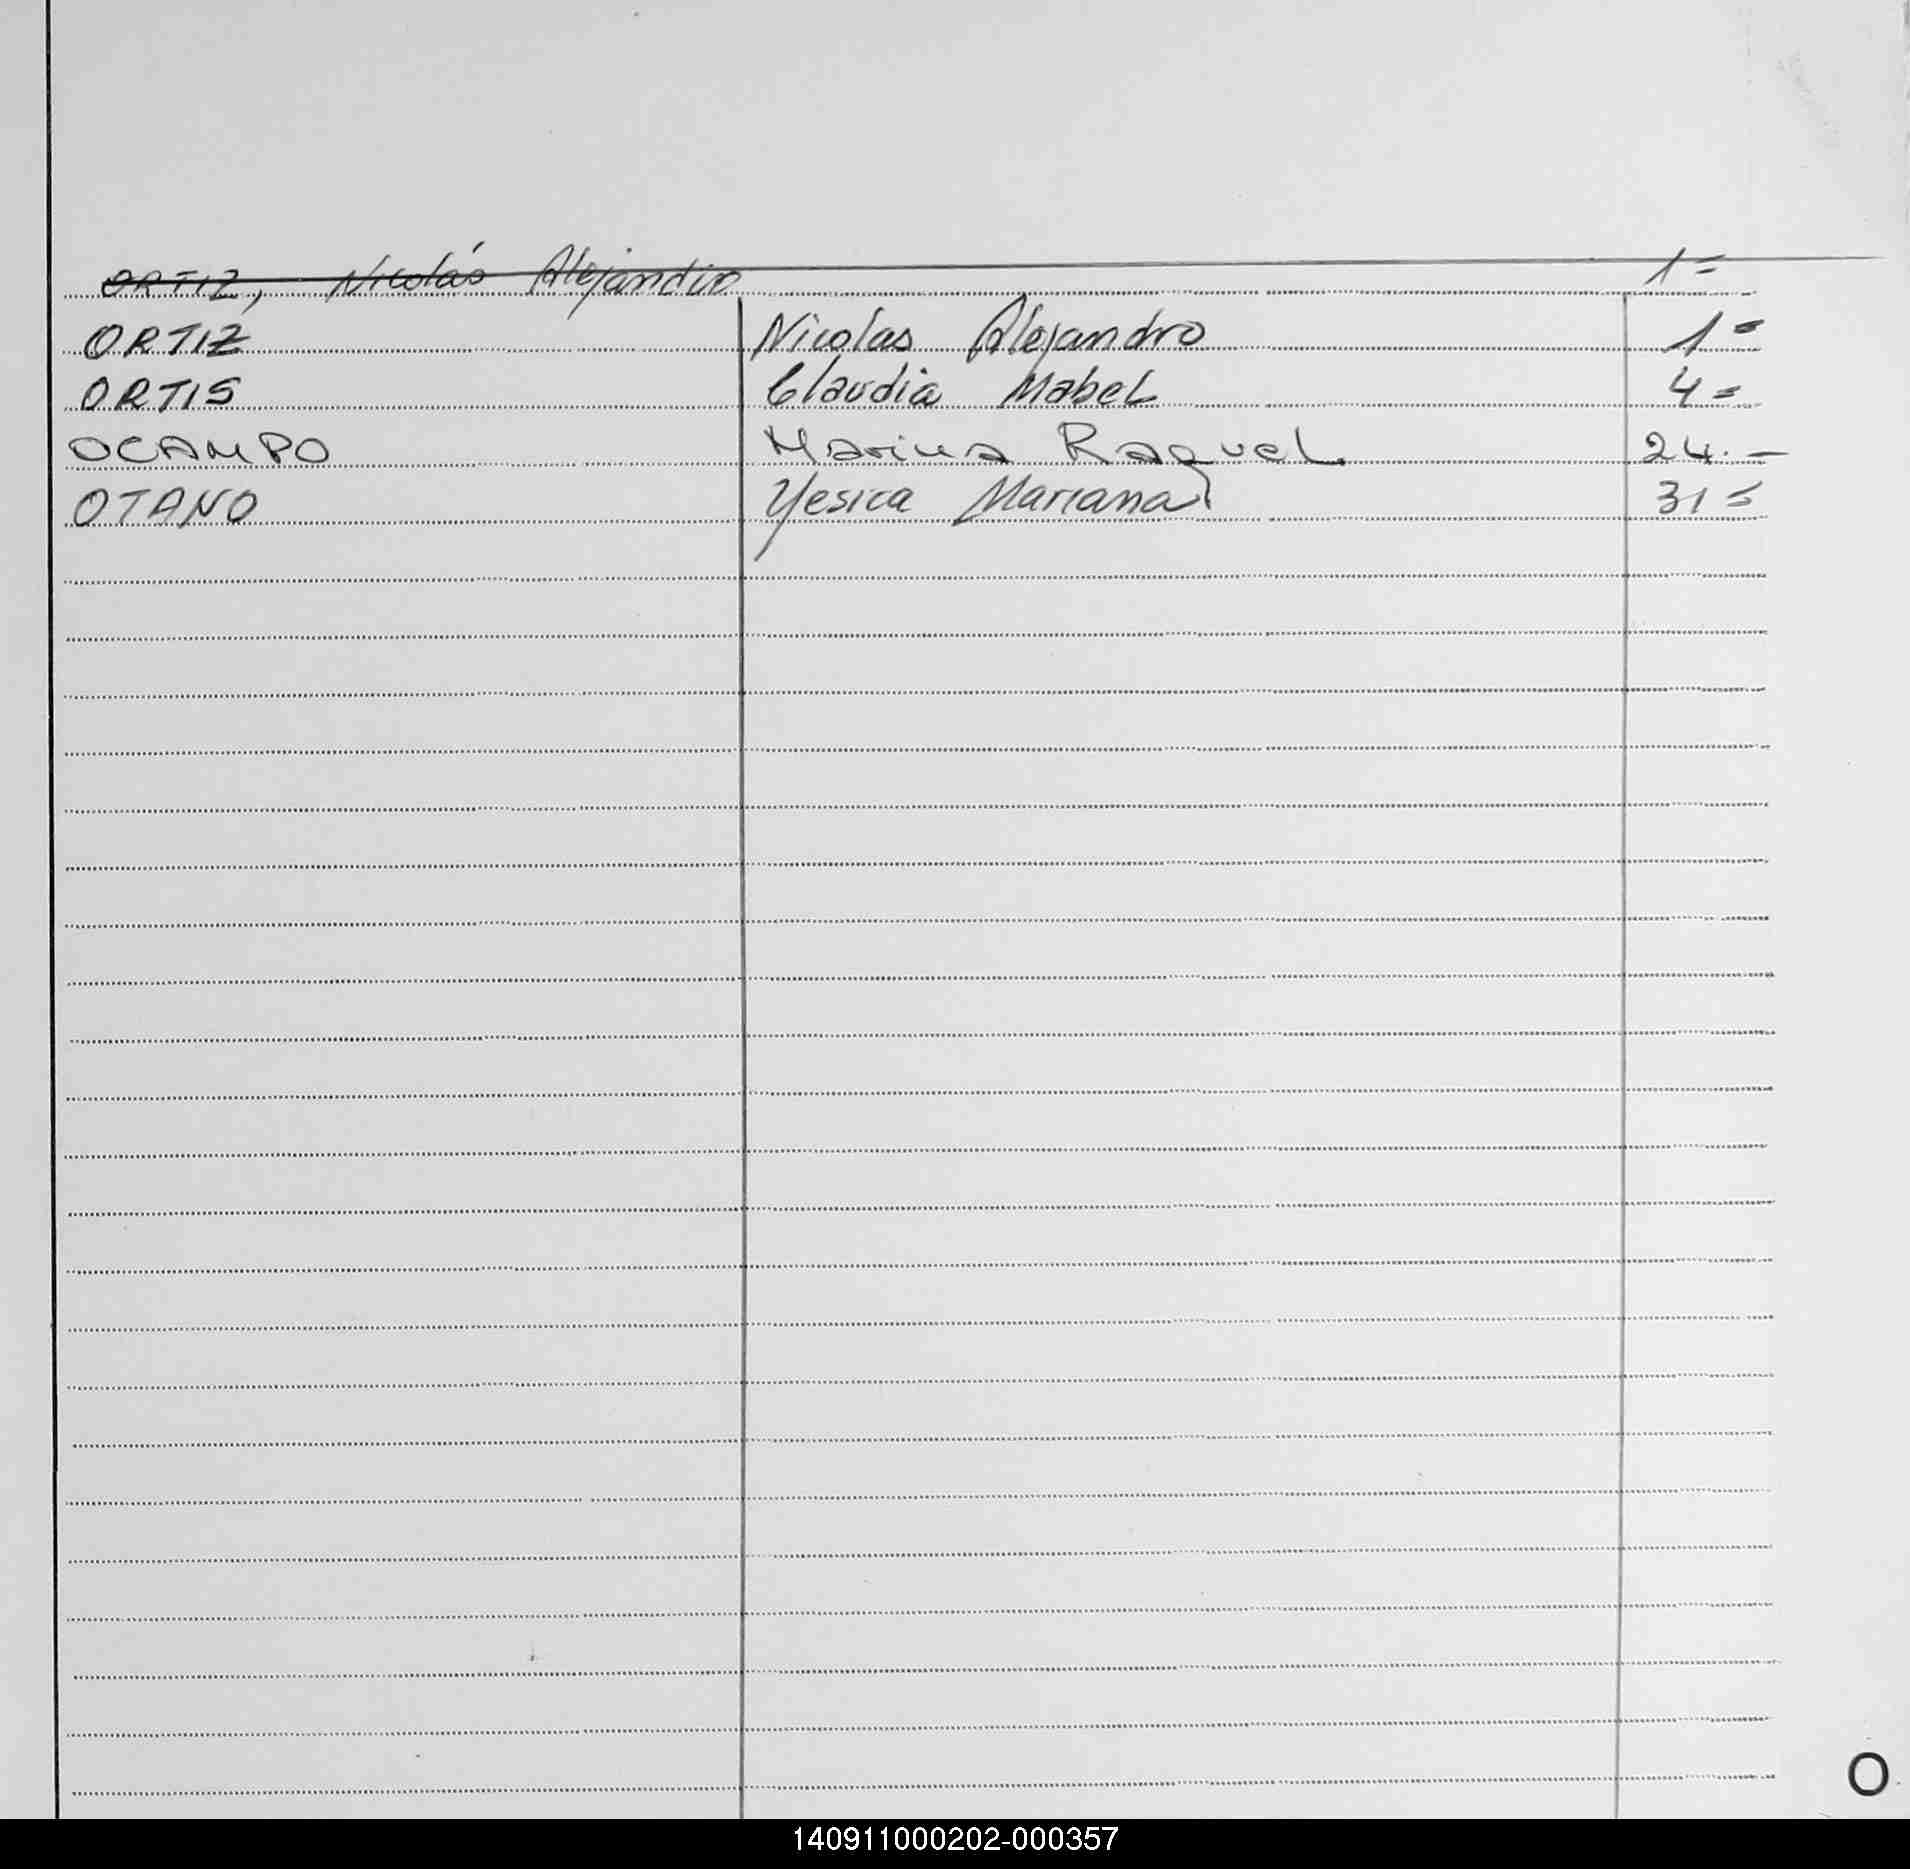 ORTIZ, Nicolás Alejandro 1=
ORTIZ Nicolas Alejandro 1=
ORTIS Claudia Mabel 4=
OCAMPO Marina Raquel 24.-
OTANO Yesica Mariana 31=
O
140911000202-000357